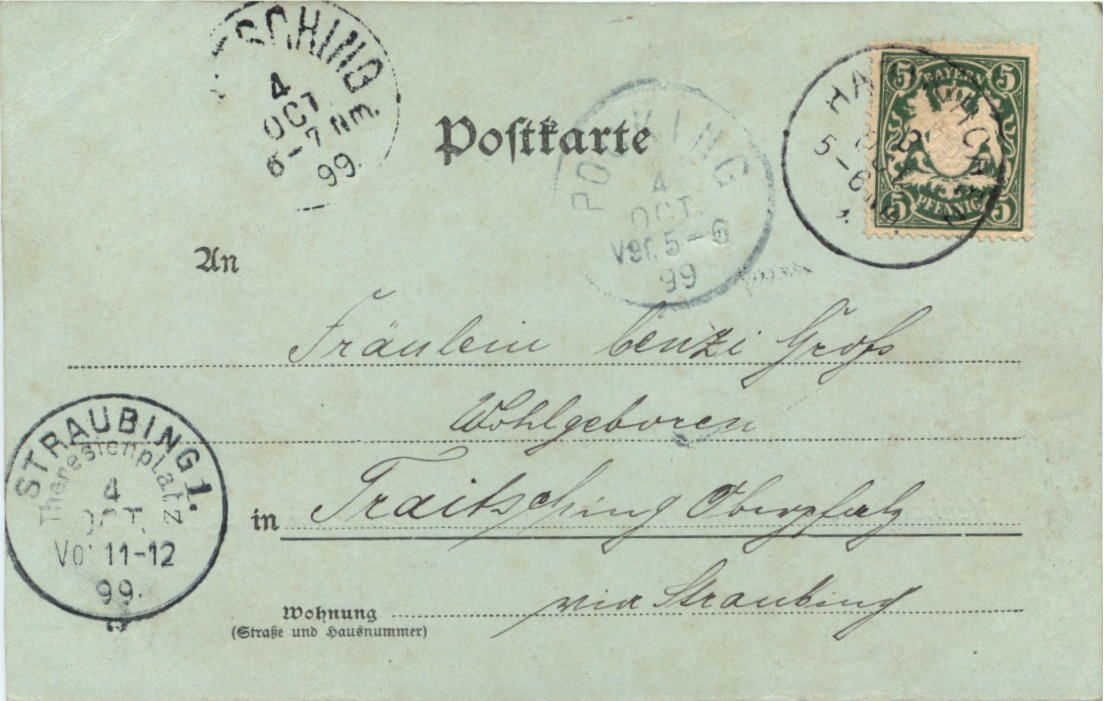 TSCHING
4
OCT
6-7 NM.
99.
Postkarte
POCKING
4
OCT.
Vor. 5-6
99
5 5
BAYERN
5 PFENNIG 5
HA
5-6 NM.
An
Fräulein Cenzi Groß
Wohlgeboren
in Traitsching Oberpfalz
via Straubing
Wohnung
(Straße und Hausnummer)
STRAUBING 1.
Theresienplatz
4
OCT.
Vor 11-12
99.